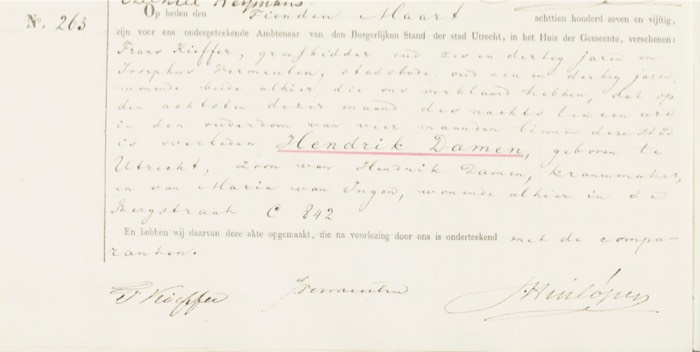 Ezechiel Heymans
Nº. 263 Op heden den Tienden Maart achttien honderd zeven en vijftig,
zijn voor ons ondergeteekende Ambtenaar van den Burgerlijken Stand der stad Utrecht, in het Huis der Gemeente, verschenen:
Frans Kieffer, groefbidder oud zes en dertig jaren en
Josephus Vermeulen, stadsbode, oud een en dertig jaren,
wonende beide alhier, die ons verklaard hebben, dat op
den achtsten dezer maand des nachts ten een ure
in den ouderdom van vier maanden binnen deze stad
is overleden Hendrik Damen, geboren te
Utrecht, zoon van Hendrik Damen, kraanmaker,
en van Maria van Ingen, wonende alhier in de
Bergstraat C 842
En hebben wij daarvan deze akte opgemaakt, die na voorlezing door ons is onderteekend met de compa-
ranten.
F Kieffer JVermeulen JHinlópen